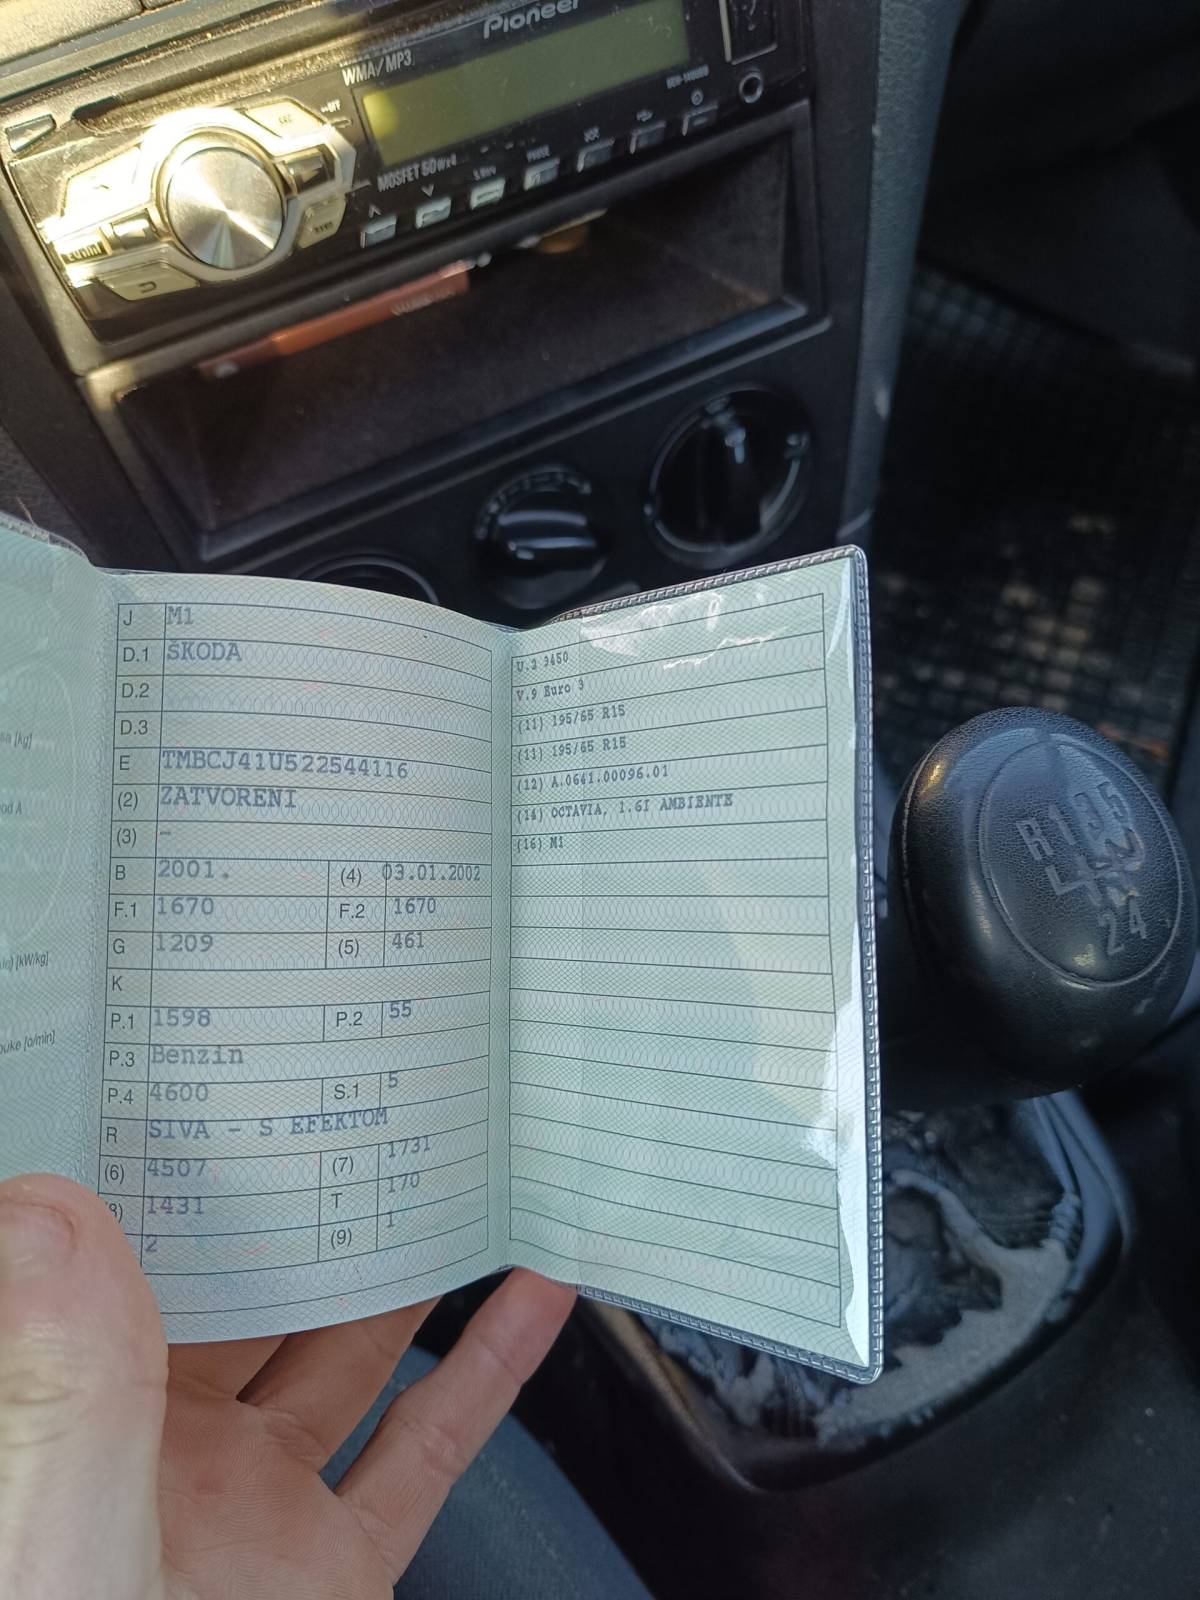 Pioneer
WMA/MP3
MOSFET 50Wx4
sa [kg]
od A
[kW/kg]
[o/min]
J M1
D.1 ŠKODA
D.2
D.3
E TMBCJ41U522544116
(2) ZATVORENI
(3) –
B 2001. (4) 03.01.2002
F.1 1670 F.2 1670
G 1209 (5) 461
K
P.1 1598 P.2 55
P.3 Benzin
P.4 4600 S.1 5
R SIVA - S EFEKTOM
(6) 4507 (7) 1731
1431 T 170
2 (9) 1
U.2 3450
V.9 Euro 3
(11) 195/65 R15
(11) 195/65 R15
(12) A.0641.00096.01
(14) OCTAVIA, 1.6I AMBIENTE
(16) M1
R 1 3 5
2 4